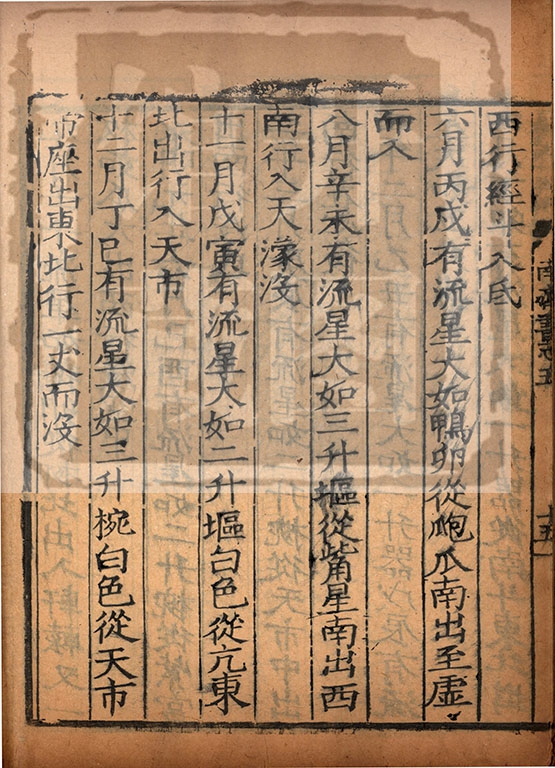 西行經斗入氐
六月丙戌有流星大如鴨卵從匏瓜南出至虛
而入
八月辛未有流星大如三升塸從觜星南出西
南行入天濛沒
十一月戊寅有流星大如二升塸白色從亢東
北出行入天市
十二月丁巳有流星大如三升椀白色從天市
帝座出東北行一丈而沒
南齊書志五
十五